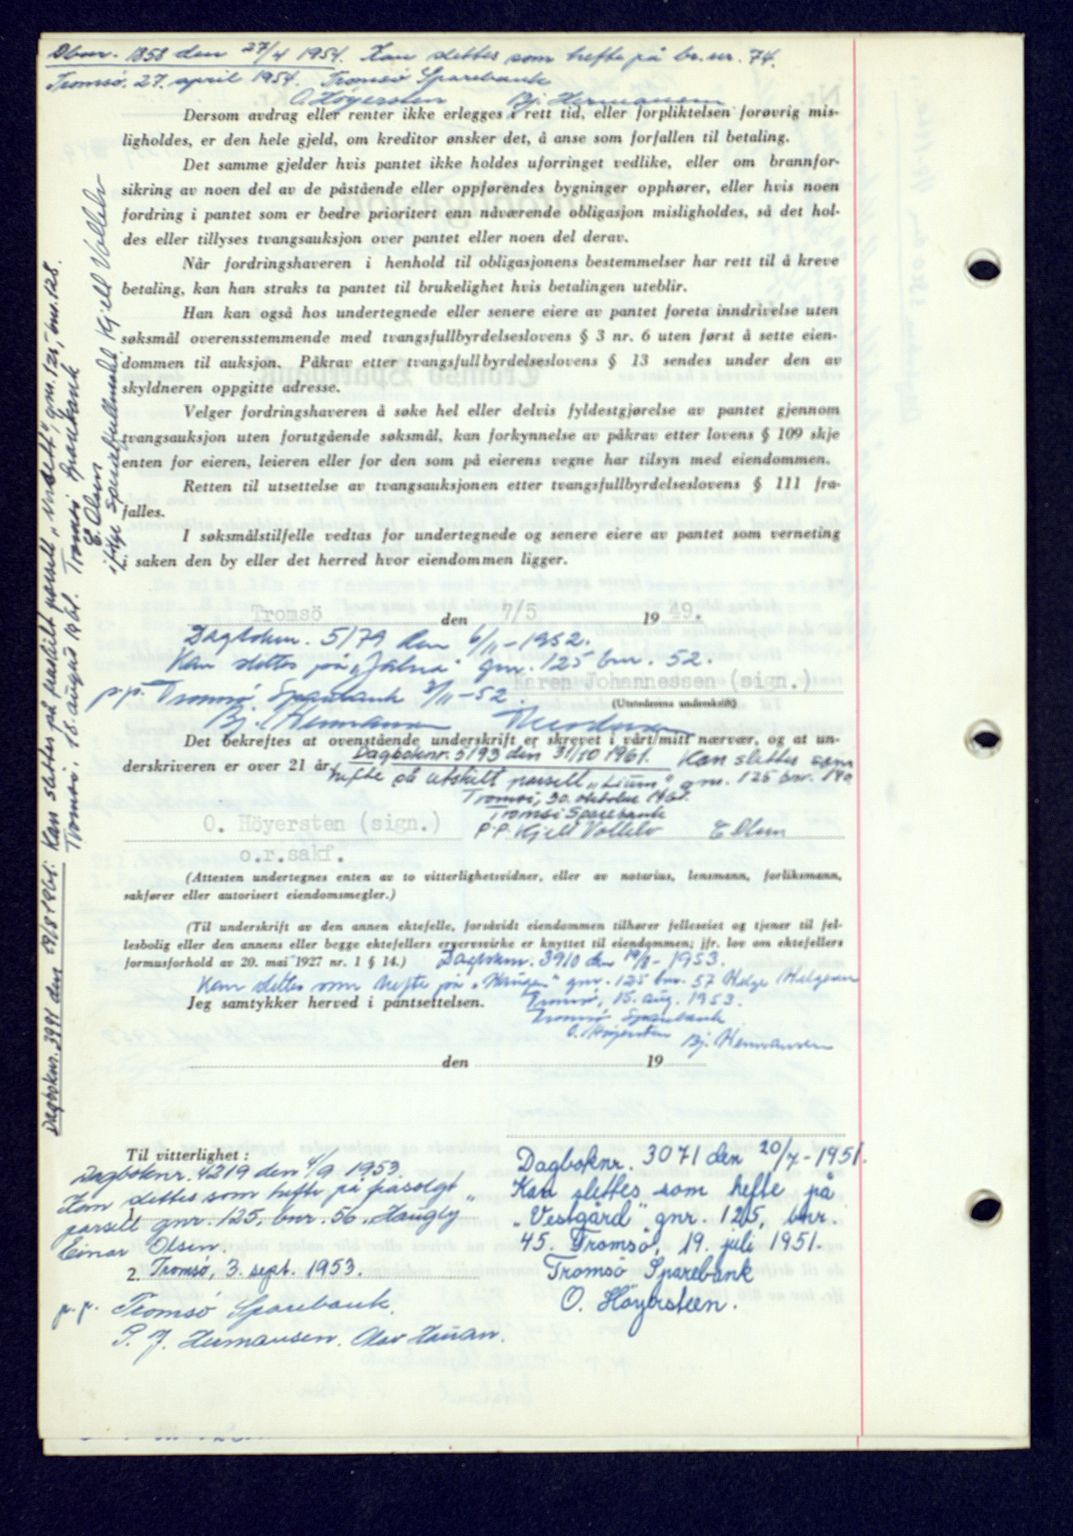 Dbnr. 1358 den 27/4 1954. Kan slettes som hefte på br.nr. 74.
Tromsö, 27. april 1954. Tromsö Sparebank
O. Höyersten Bj. Hermansen
Dersom avdrag eller renter ikke erlegges i rett tid, eller forpliktelsen forøvrig mis-
ligholdes, er den hele gjeld, om kreditor ønsker det, å anse som forfallen til betaling.
Det samme gjelder hvis pantet ikke holdes uforringet vedlike, eller om brannfor-
sikring av noen del av de påstående eller oppførendes bygninger opphører, eller hvis noen
fordring i pantet som er bedre prioritert enn nåværende obligasjon misligholdes, så det hol-
des eller tillyses tvangsauksjon over pantet eller noen del derav.
Når fordringshaveren i henhold til obligasjonens bestemmelser har rett til å kreve
betaling, kan han straks ta pantet til brukelighet hvis betalingen uteblir.
Han kan også hos undertegnede eller senere eiere av pantet foreta inndrivelse uten
søksmål overensstemmende med tvangsfullbyrdelseslovens § 3 nr. 6 uten først å sette eien-
dommen til auksjon. Påkrav etter tvangsfullbyrdelseslovens § 13 sendes under den av
skyldneren oppgitte adresse.
Velger fordringshaveren å søke hel eller delvis fyldestgjørelse av pantet gjennom
tvangsauksjon uten forutgående søksmål, kan forkynnelse av påkrav etter lovens § 109 skje
enten for eieren, leieren eller for den som på eierens vegne har tilsyn med eiendommen.
Retten til utsettelse av tvangsauksjonen etter tvangsfullbyrdelseslovens § 111 fra-
falles.
I søksmålstilfelle vedtas for undertegnede og senere eiere av pantet som verneting
i saken den by eller det herred hvor eiendommen ligger.
Tromsö den 7/5 1949.
Dagboknr. 5179 den 6/11-1952.
Kan slettes på gnr. 125 bnr. 52.
p.p. Tromsö Sparebank 3/11-52.
Karen Johannessen (sign.)
(Utstederens underskrift)
Bj. Hermansen
Det bekreftes at ovenstående underskrift er skrevet i vårt/mitt nærvær, og at un-
derskriveren er over 21 år.
Dagboknr. 5193 den 31/10 1961. Kan slettes som
hefte på utskilt parsell gnr. 125 bnr.
Tromsö, 30. oktober 1961.
Tromsö Sparebank
P.P. Kjell Vollelv E Olsen
O. Höyersten (sign.)
o.r.sakf.
(Attesten undertegnes enten av to vitterlighetsvidner, eller av notarius, lensmann, forliksmann,
sakfører eller autorisert eiendomsmegler.)
(Til underskrift av den annen ektefelle, forsåvidt eiendommen tilhører felleseiet og tjener til fel-
lesbolig eller den annens eller begge ektefellers ervervsvirke er knyttet til eiendommen; jfr. lov om ektefellers
formuesforhold av 20. mai 1927 nr. 1 § 14.)
Dagboknr. 3910 den 19/8-1953.
Kan slettes som hefte på "Haugen" gnr. 125 bnr. 57 Helge Helgesen
Jeg samtykker herved i pantsettelsen.
Tromsö, 15. aug. 1953.
Tromsö Sparebank
O. Höyersten Bj. Hermansen
den 19
Til vitterlighet:
Dagboknr. 4219 den 4/9 1953.
Kan slettes som hefte på påsolgt
1.
parsell gnr. 125, bnr. 56, "Haugly"
Einar Olsen.
2. Tromsö, 3. sept. 1953.
p.p. Tromsö Sparebank.
P. J. Hermansen.
Dagboknr. 3071 den 20/7-1951.
Kan slettes som hefte på
„Vestgård" gnr. 125, bnr.
45. Tromsö, 19. juli 1951.
Tromsö Sparebank
O. Höyersteen.
Dagboknr. 3991 den 19/8 1961. Kan slettes på fraskilt parsell gnr. 125, bnr. 128.
Tromsö, 18. august 1961. Tromsö Sparebank
E. Olsen
iflge spesialfullmakt Kjell Vollelv